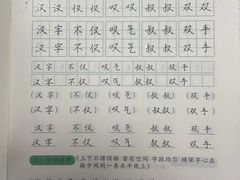 汉 汉 不 仅 叹 叹 叔 叔 双 双
汉 字 不 仅 叹 气 叔 叔 双 手
汉 字 不 仅 叹 气 叔 叔 双 手
汉 字 不 仅 叹 气 叔 叔 双 手
汉 字 不 仅 叹 气 叔 叔 双 手
(汉 字) (不 仅) (叹 气) (叔 叔) (双 手)
(汉 字) (不 仅) (叹 气) (叔 叔) (双 手)
(上下不得顶格 留有空间 字距均匀 确保字心在
格中间同一条水平线上)